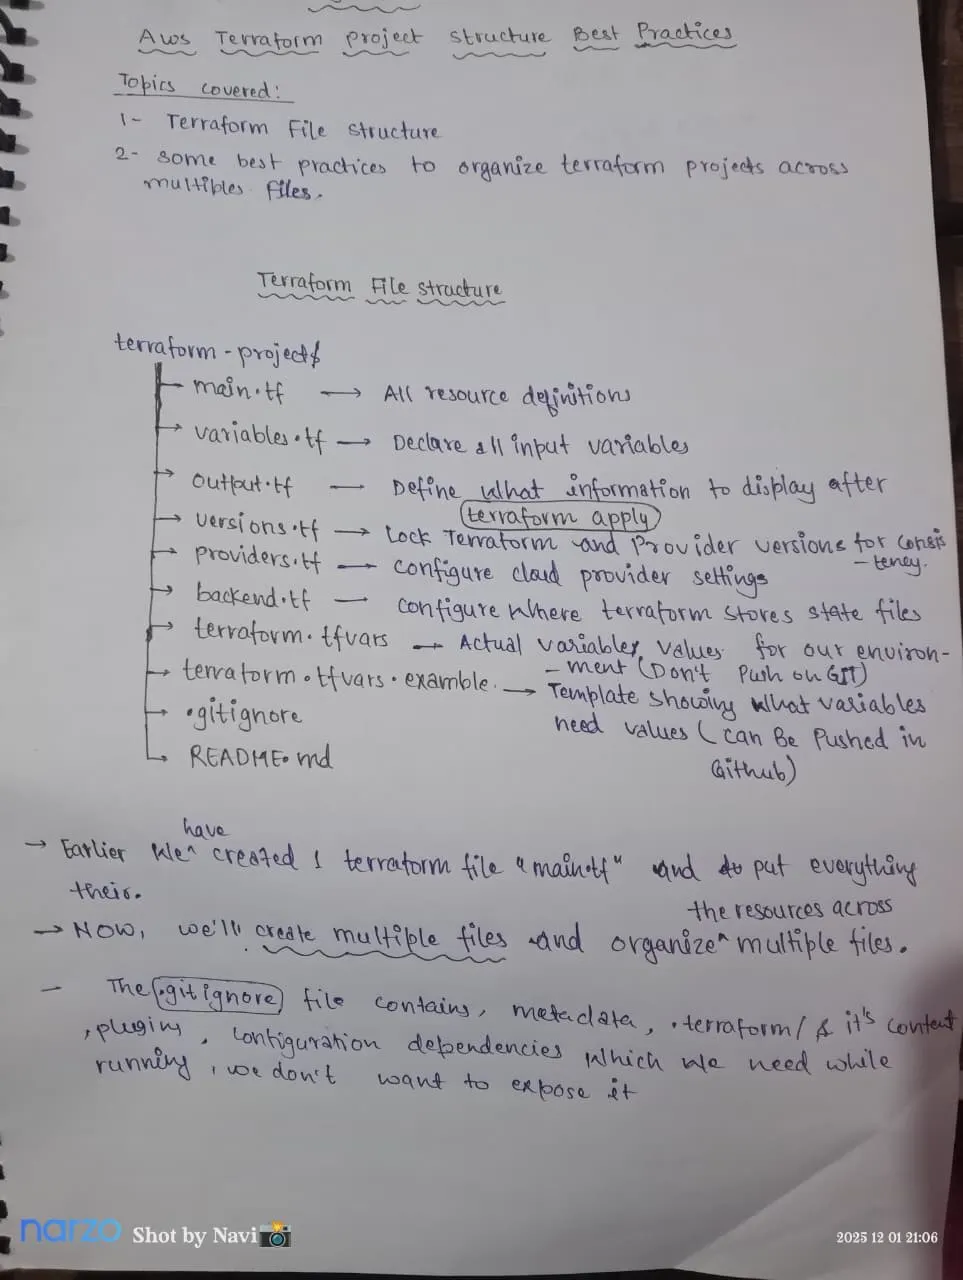 Aws Terraform project structure Best Practices
Topics covered:
1- Terraform File structure
2- some best practices to organize terraform projects across
multiples files.
Terraform File structure
terraform-project$
main.tf → All resource definitions
variables.tf → Declare all input variables
output.tf — Define what information to display after
terraform apply
versions.tf → Lock Terraform and Provider versions for consis
-tency.
providers.tf — configure cloud provider settings
backend.tf — configure where terraform stores state files
terraform.tfvars → Actual variable values for our environ-
-ment (Don't Push on GIT)
terraform.tfvars.examble. → Template showing what variables
.gitignore need values (can Be Pushed in
README.md Github)
have
→ Earlier we^ created 1 terraform file "main.tf" and put everything
their.
the resources across
→ Now, we'll create multiple files and organize^ multiple files.
- The .gitignore file contains, metadata, .terraform/ & it's content
, plugins, configuration dependencies which we need while
running, we don't want to expose it
narzo Shot by Navi
2025 12 01 21:06